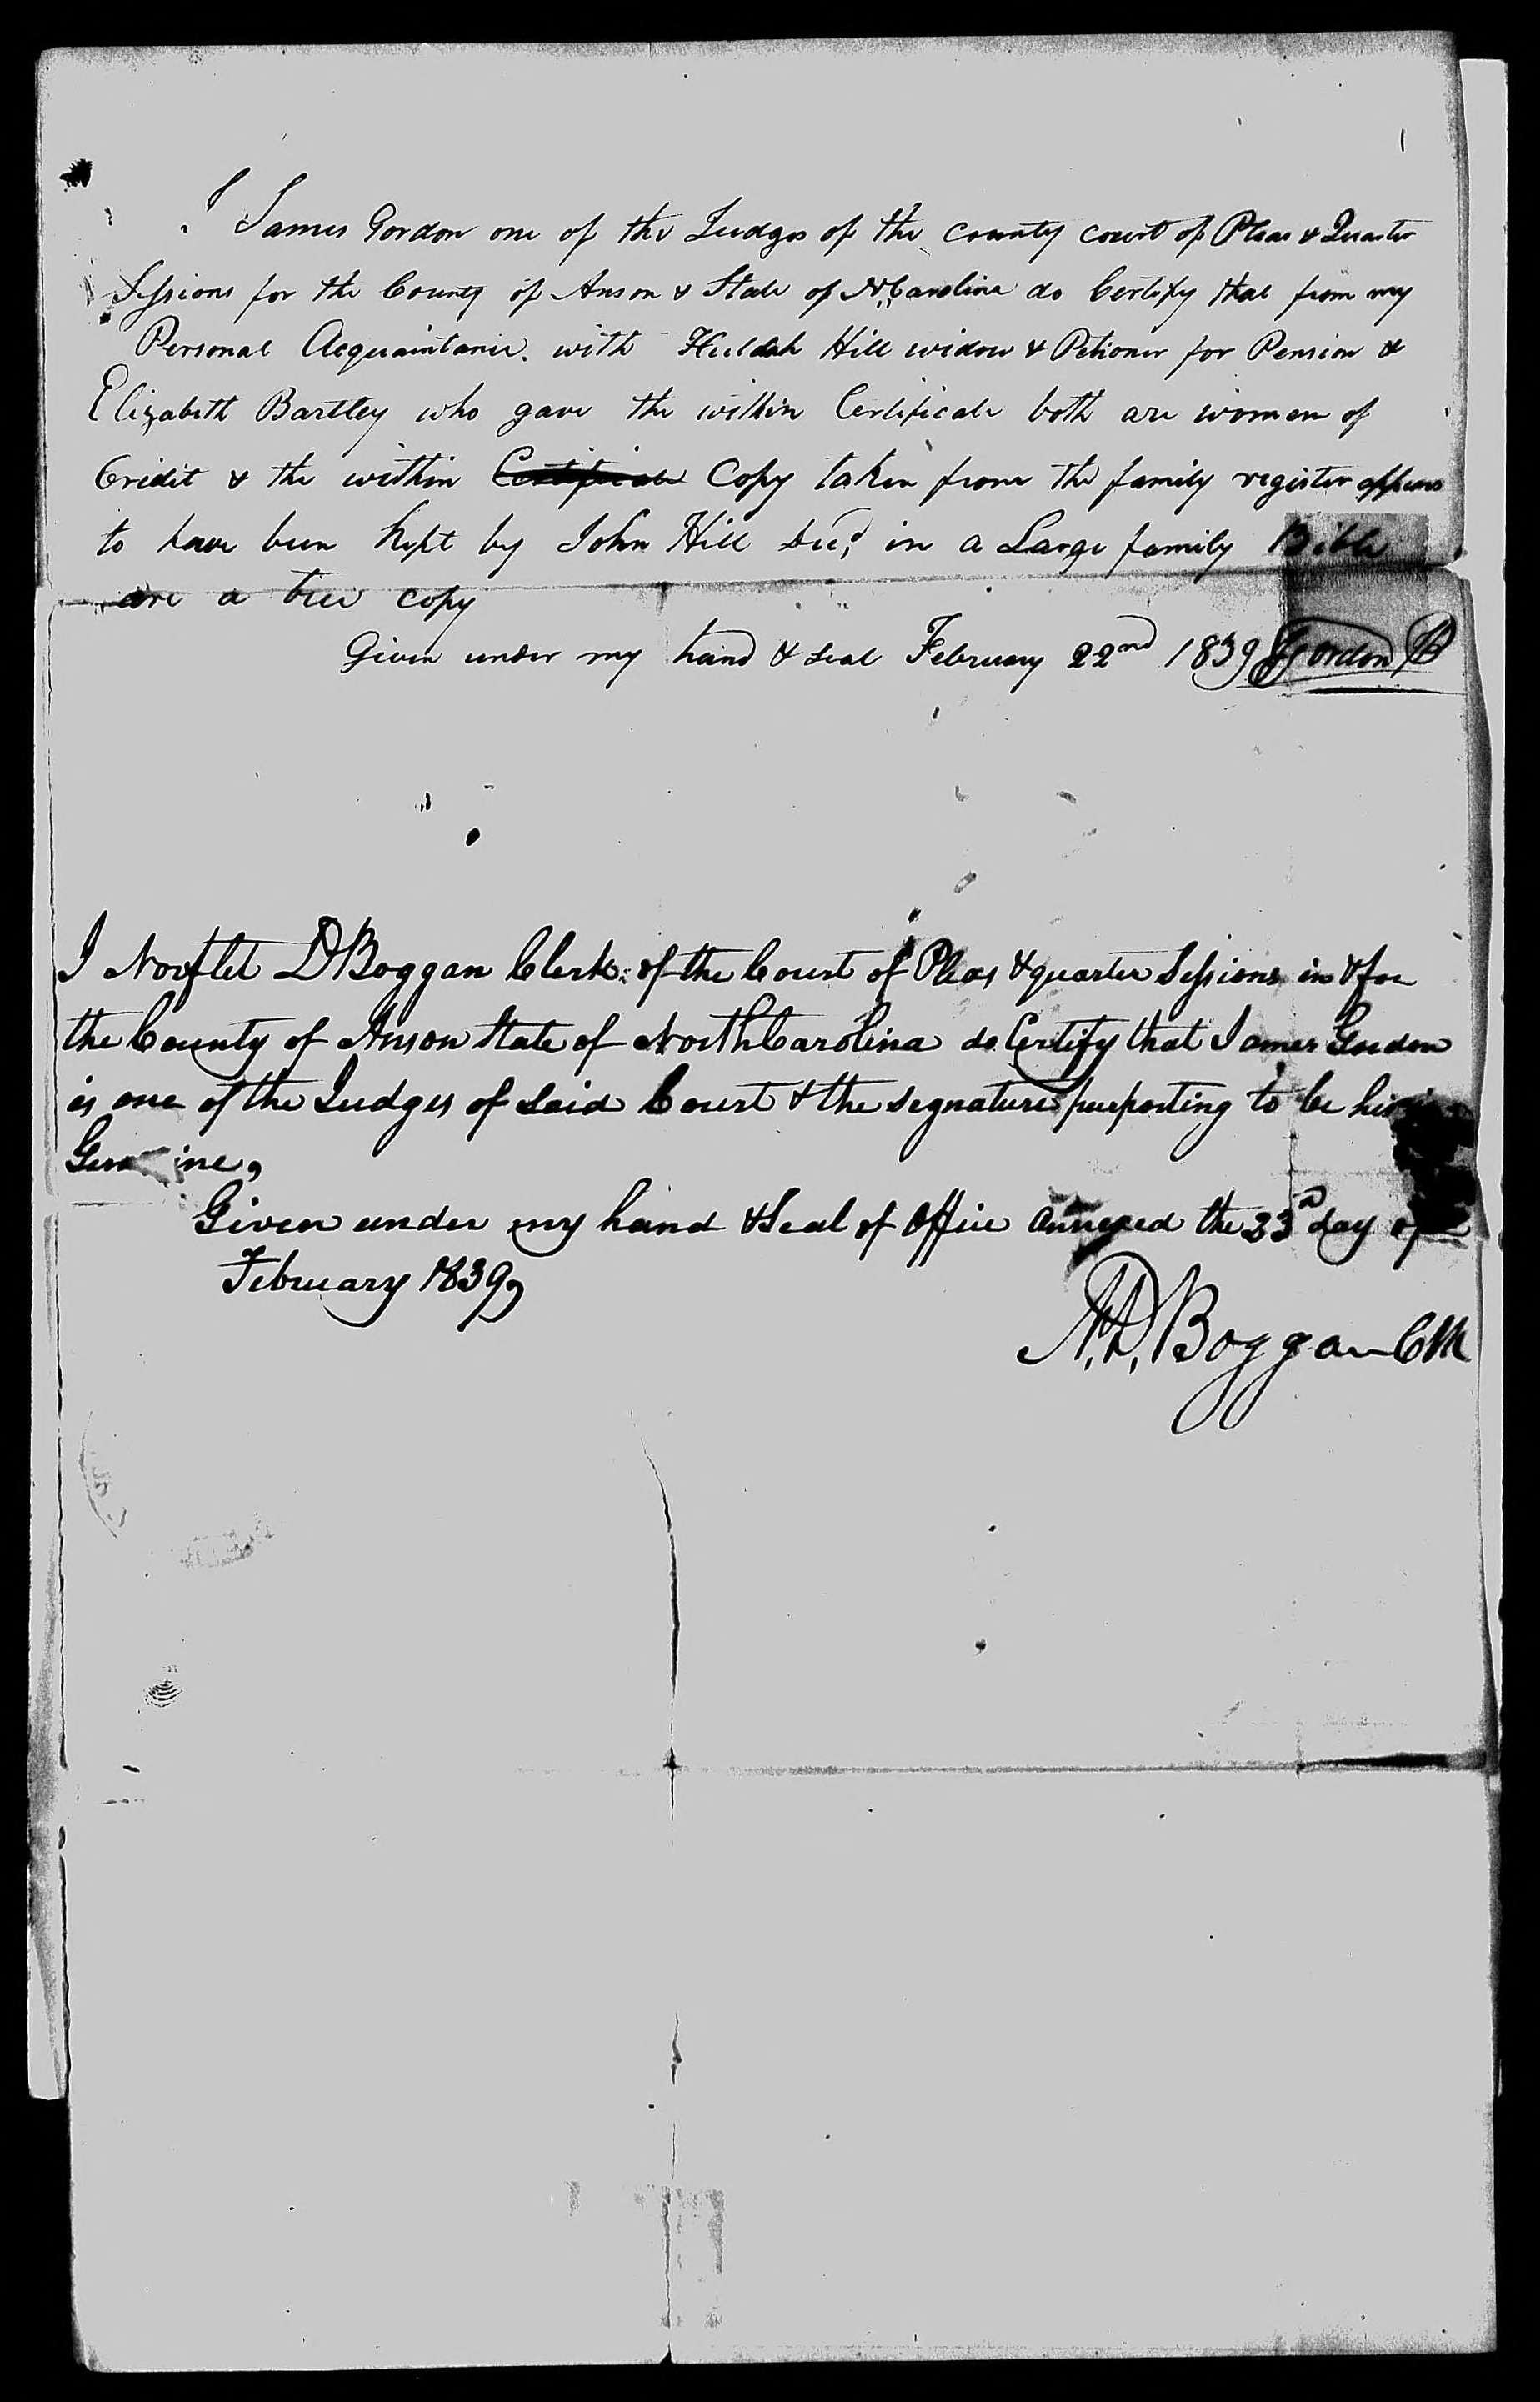 I James Gordon one of the Judges of the county court of Pleas & Quarter
Sessions for the County of Anson & State of N Carolina do Certify that from my
Personal Acquaintance. with Huldah Hill widow & Petioner for Pension &
Elizabeth Bartley who gave the within Certificate both are women of
Credit & the within Certificate Copy taken from the family register appears
to have been kept by John Hill Decd in a Large family Bible
are a true copy
Given under my hand & seal February 22nd 1839 J Gordon
I Norflet D Boggan Clerk of the Court of Pleas & quarter Sessions in & for
the County of Anson State of North Carolina do Certify that James Gordon
is one of the Judges of Said Court & the signature purporting to be his
Genuine,
Given under my hand & Seal of Office annexed the 23d day of
February 1839,
N. D. Boggan Clk